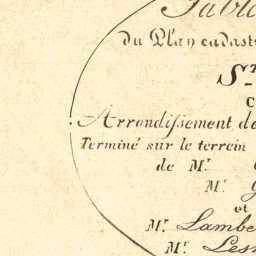 Table
du Plan cadast
St
c
Arrondissement d
Terminé sur le terrein
de Mr.
Mr. G
et
Mr. Lambe
Mr. Les